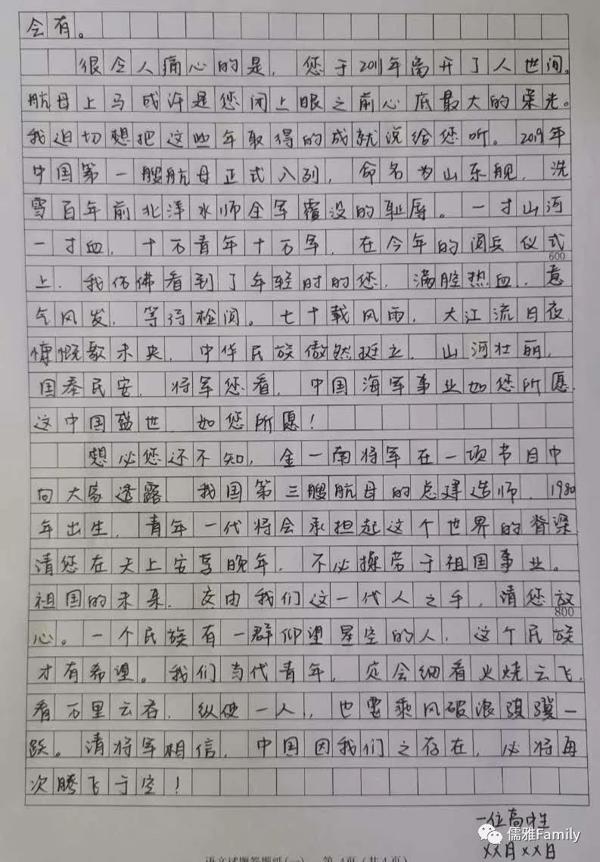 会有。
很令人痛心的是，您于2011年离开了人世间。
航母上马或许是您闭上眼之前心底最大的柔光。
我迫切想把这些年取得的成就说给您听。2019年
中国第一艘航母正式入列，命名为山东舰，洗
雪百年前北洋水师全军覆没的耻辱。一寸山河
一寸血，十万青年十万军，在今年的阅兵仪式
600
上，我仿佛看到了年轻时的您，满腔热血，意
气风发，等待检阅。七十载风雨，大江流日夜，
慷慨歌未央，中华民族傲然挺立，山河壮丽，
国泰民安，将军您看，中国海军事业如您所愿，
这中国盛世，如您所愿！
想必您还不知，金一南将军在一项节目中
向大家透露，我国第三艘航母的总建造师，1980
年出生，青年一代将会承担起这个世界的脊梁
请您在天上安享晚年，不必操劳于祖国事业。
祖国的未来，交由我们这一代人之手，请您放
800
心。一个民族有一群仰望星空的人，这个民族
才有希望。我们当代青年，定会细看火烧云飞，
看万里云吞，纵使一人，也要乘风破浪骐骥一
跃。请将军相信，中国因我们之存在，必将再
次腾飞于空！
一位高中生
XX月XX日
儒雅Family
语文试题答题纸(一) 第4页（共4页）